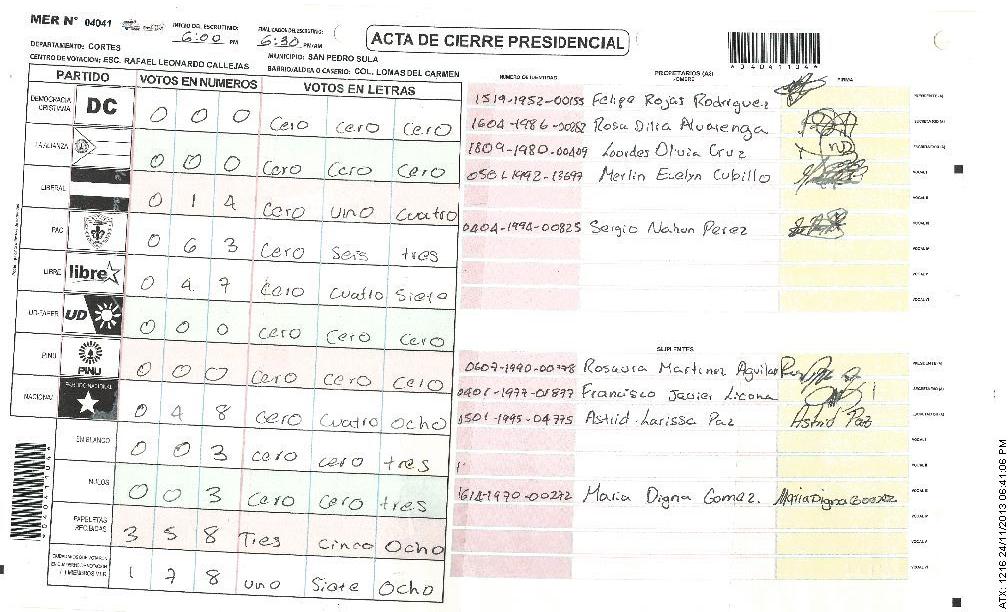 MER N° 04041
INICIO DEL ESCRUTINIO: 6:00 PM
FINALIZACION DEL ESCRUTINIO: 6:30 PM/AM
ACTA DE CIERRE PRESIDENCIAL
*04041104*
DEPARTAMENTO: CORTES
MUNICIPIO: SAN PEDRO SULA
CENTRO DE VOTACION: ESC. RAFAEL LEONARDO CALLEJAS
BARRIO/ALDEA O CASERIO: COL. LOMAS DEL CARMEN
PARTIDO VOTOS EN NUMEROS VOTOS EN LETRAS
DEMOCRACIA CRISTIANA DC 0 0 0 Cero cero cero
LA ALIANZA 0 0 0 Cero Cero Cero
LIBERAL 0 1 4 Cero uno cuatro
PAC 0 6 3 Cero Seis tres
LIBRE libre 0 4 7 Cero cuatro Siete
UD-FAPER UD 0 0 0 cero cero cero
PINU PINU 0 0 0 cero cero cero
NACIONAL PARTIDO NACIONAL 0 4 8 cero cuatro Ocho
EN BLANCO 0 0 3 cero cero tres
NULOS 0 0 3 cero cero tres
PAPELETAS RECIBIDAS 3 5 8 Tres cinco Ocho
1 7 8 uno Siete Ocho
NUMERO DE IDENTIDAD PROPIETARIOS (AS) NOMBRE FIRMA
1519-1952-00155 Felipe Rojas Rodriguez PRESIDENTE (A)
1604-1986-00282 Rosa Dilia Alvarenga SECRETARIO (A)
1809-1980-00409 Lourdes Olivia Cruz ESCRUTADOR (A)
0501-1992-13697 Merlin Evelyn Cubillo VOCAL I
VOCAL II
0404-1994-00825 Sergio Nahun Perez VOCAL III
VOCAL IV
VOCAL V
VOCAL VI
SUPLENTES
0607-1990-00778 Rosaura Martinez Aguilar PRESIDENTE (A)
0401-1977-01877 Francisco Javier Licona SECRETARIO (A)
0501-1995-04775 Astrid Larissa Paz Astrid Paz ESCRUTADOR (A)
VOCAL I
VOCAL II
1614-1970-00272 Maria Digna Gomez. Maria Digna Gomez VOCAL III
VOCAL IV
VOCAL V
VOCAL VI
*04041104*
ATX: 1216 24/11/2013 06:41:06 PM